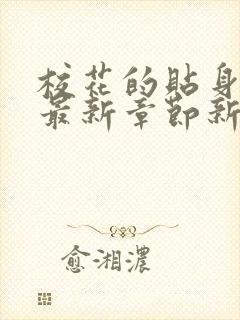 校花的貼身
最新章節新
愈湘濃